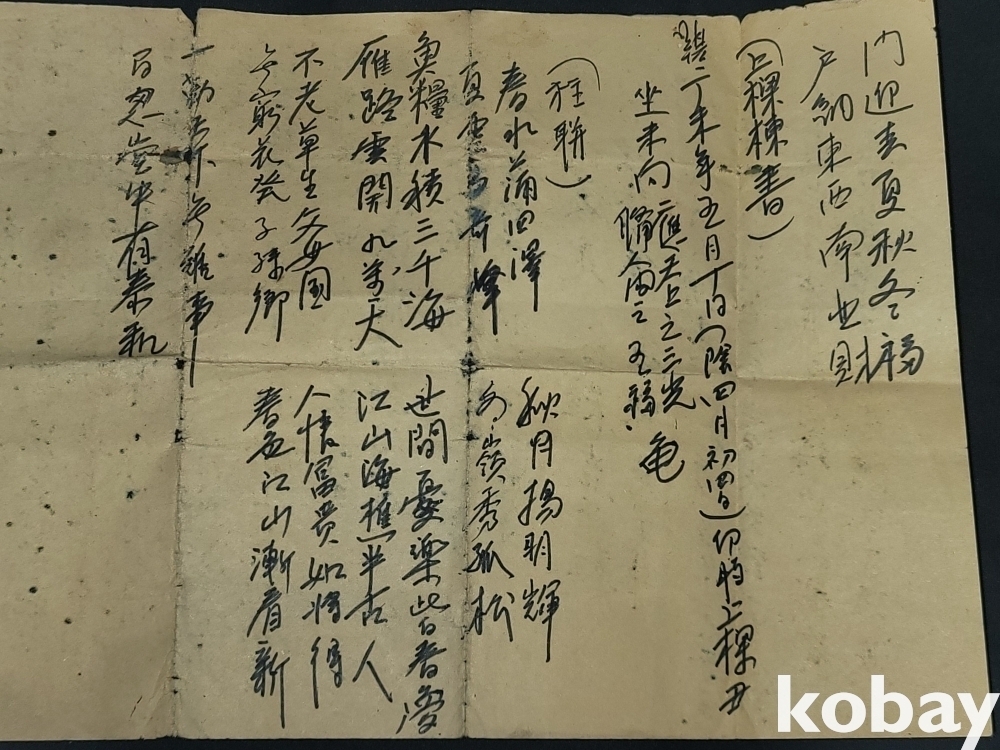 門迎春夏秋冬福
戶納東西南北財
(上樑棟書)
二未年五月 日(陰四月初四日)卯時上樑
坐未向 應天上之三光
備人間之五福 龜
(柱聯)
春水滿四澤
夏雲多奇峰
秋月揚明輝
冬嶺秀孤松
魚糧水積三千海
雁路雲開九萬天
世間憂樂
江山海樵半古人
不老草生父母國
無窮花發子孫鄉
人情富貴如將得
春色江山漸看新
一勤天下無難事
百忍堂中有泰和
kobay